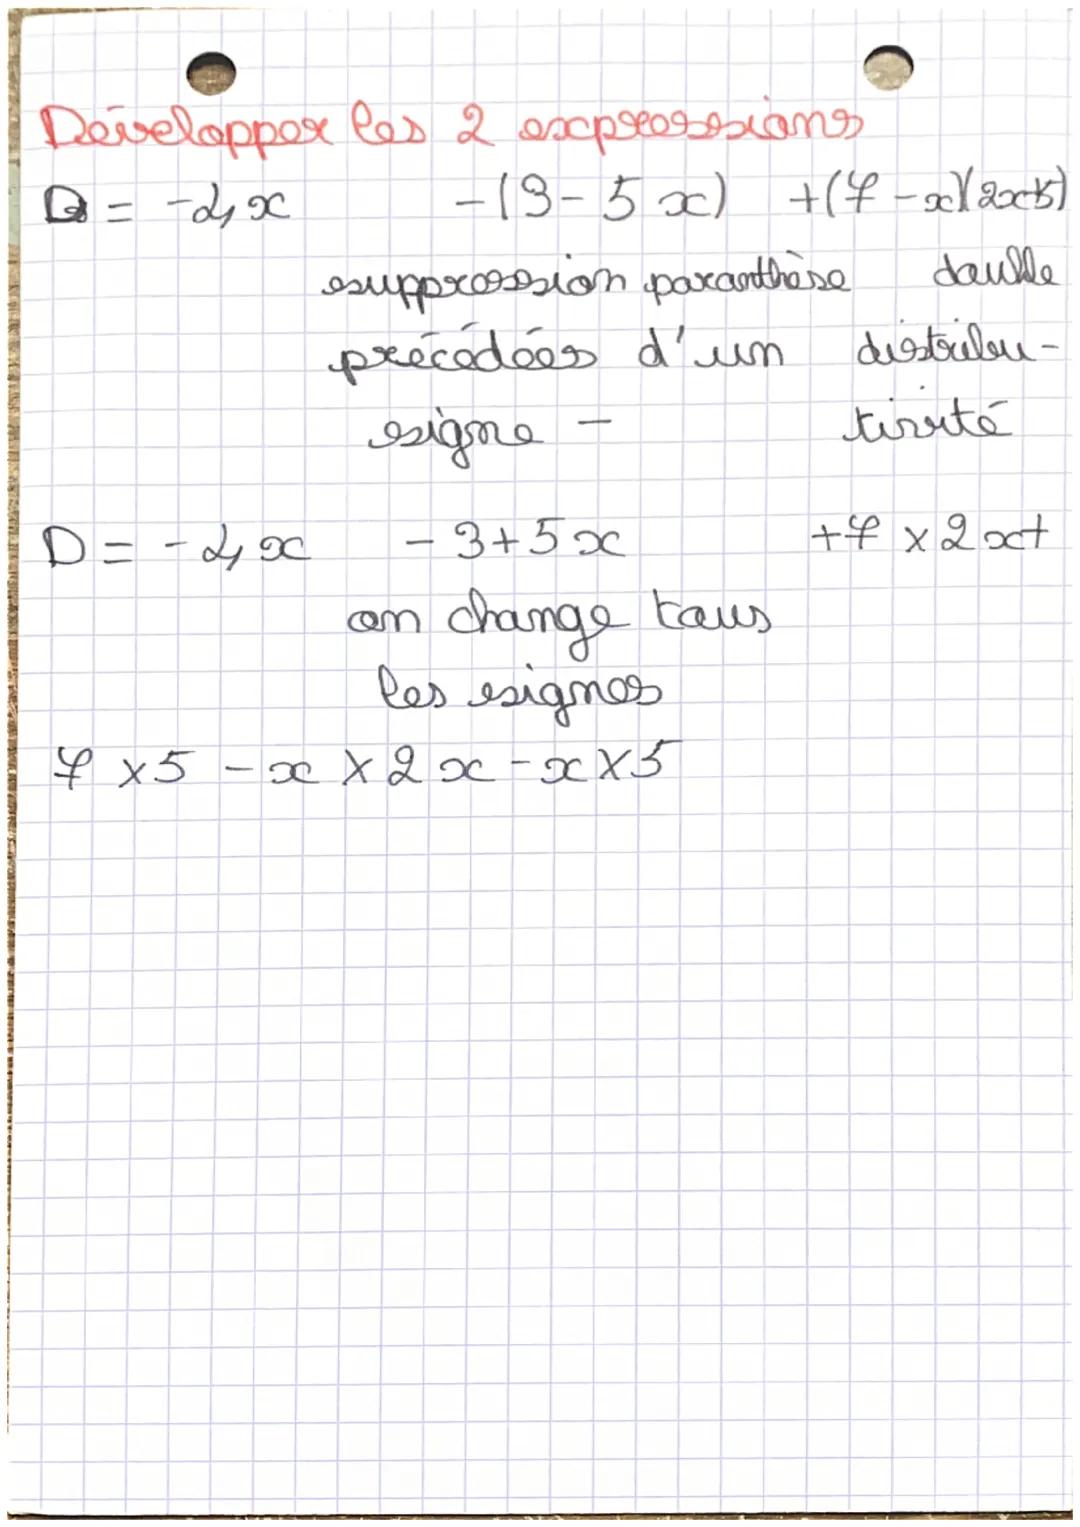 Développer les 2 expressions
D = -4x -(3-5x) +(7-x)(2x+5)
suppression paranthèse double
précédées d'un distribu-
signe - tivité
D = -4x -3+5x +7×2x+
on change tous
les signes
7×5 -x×2x-x×5